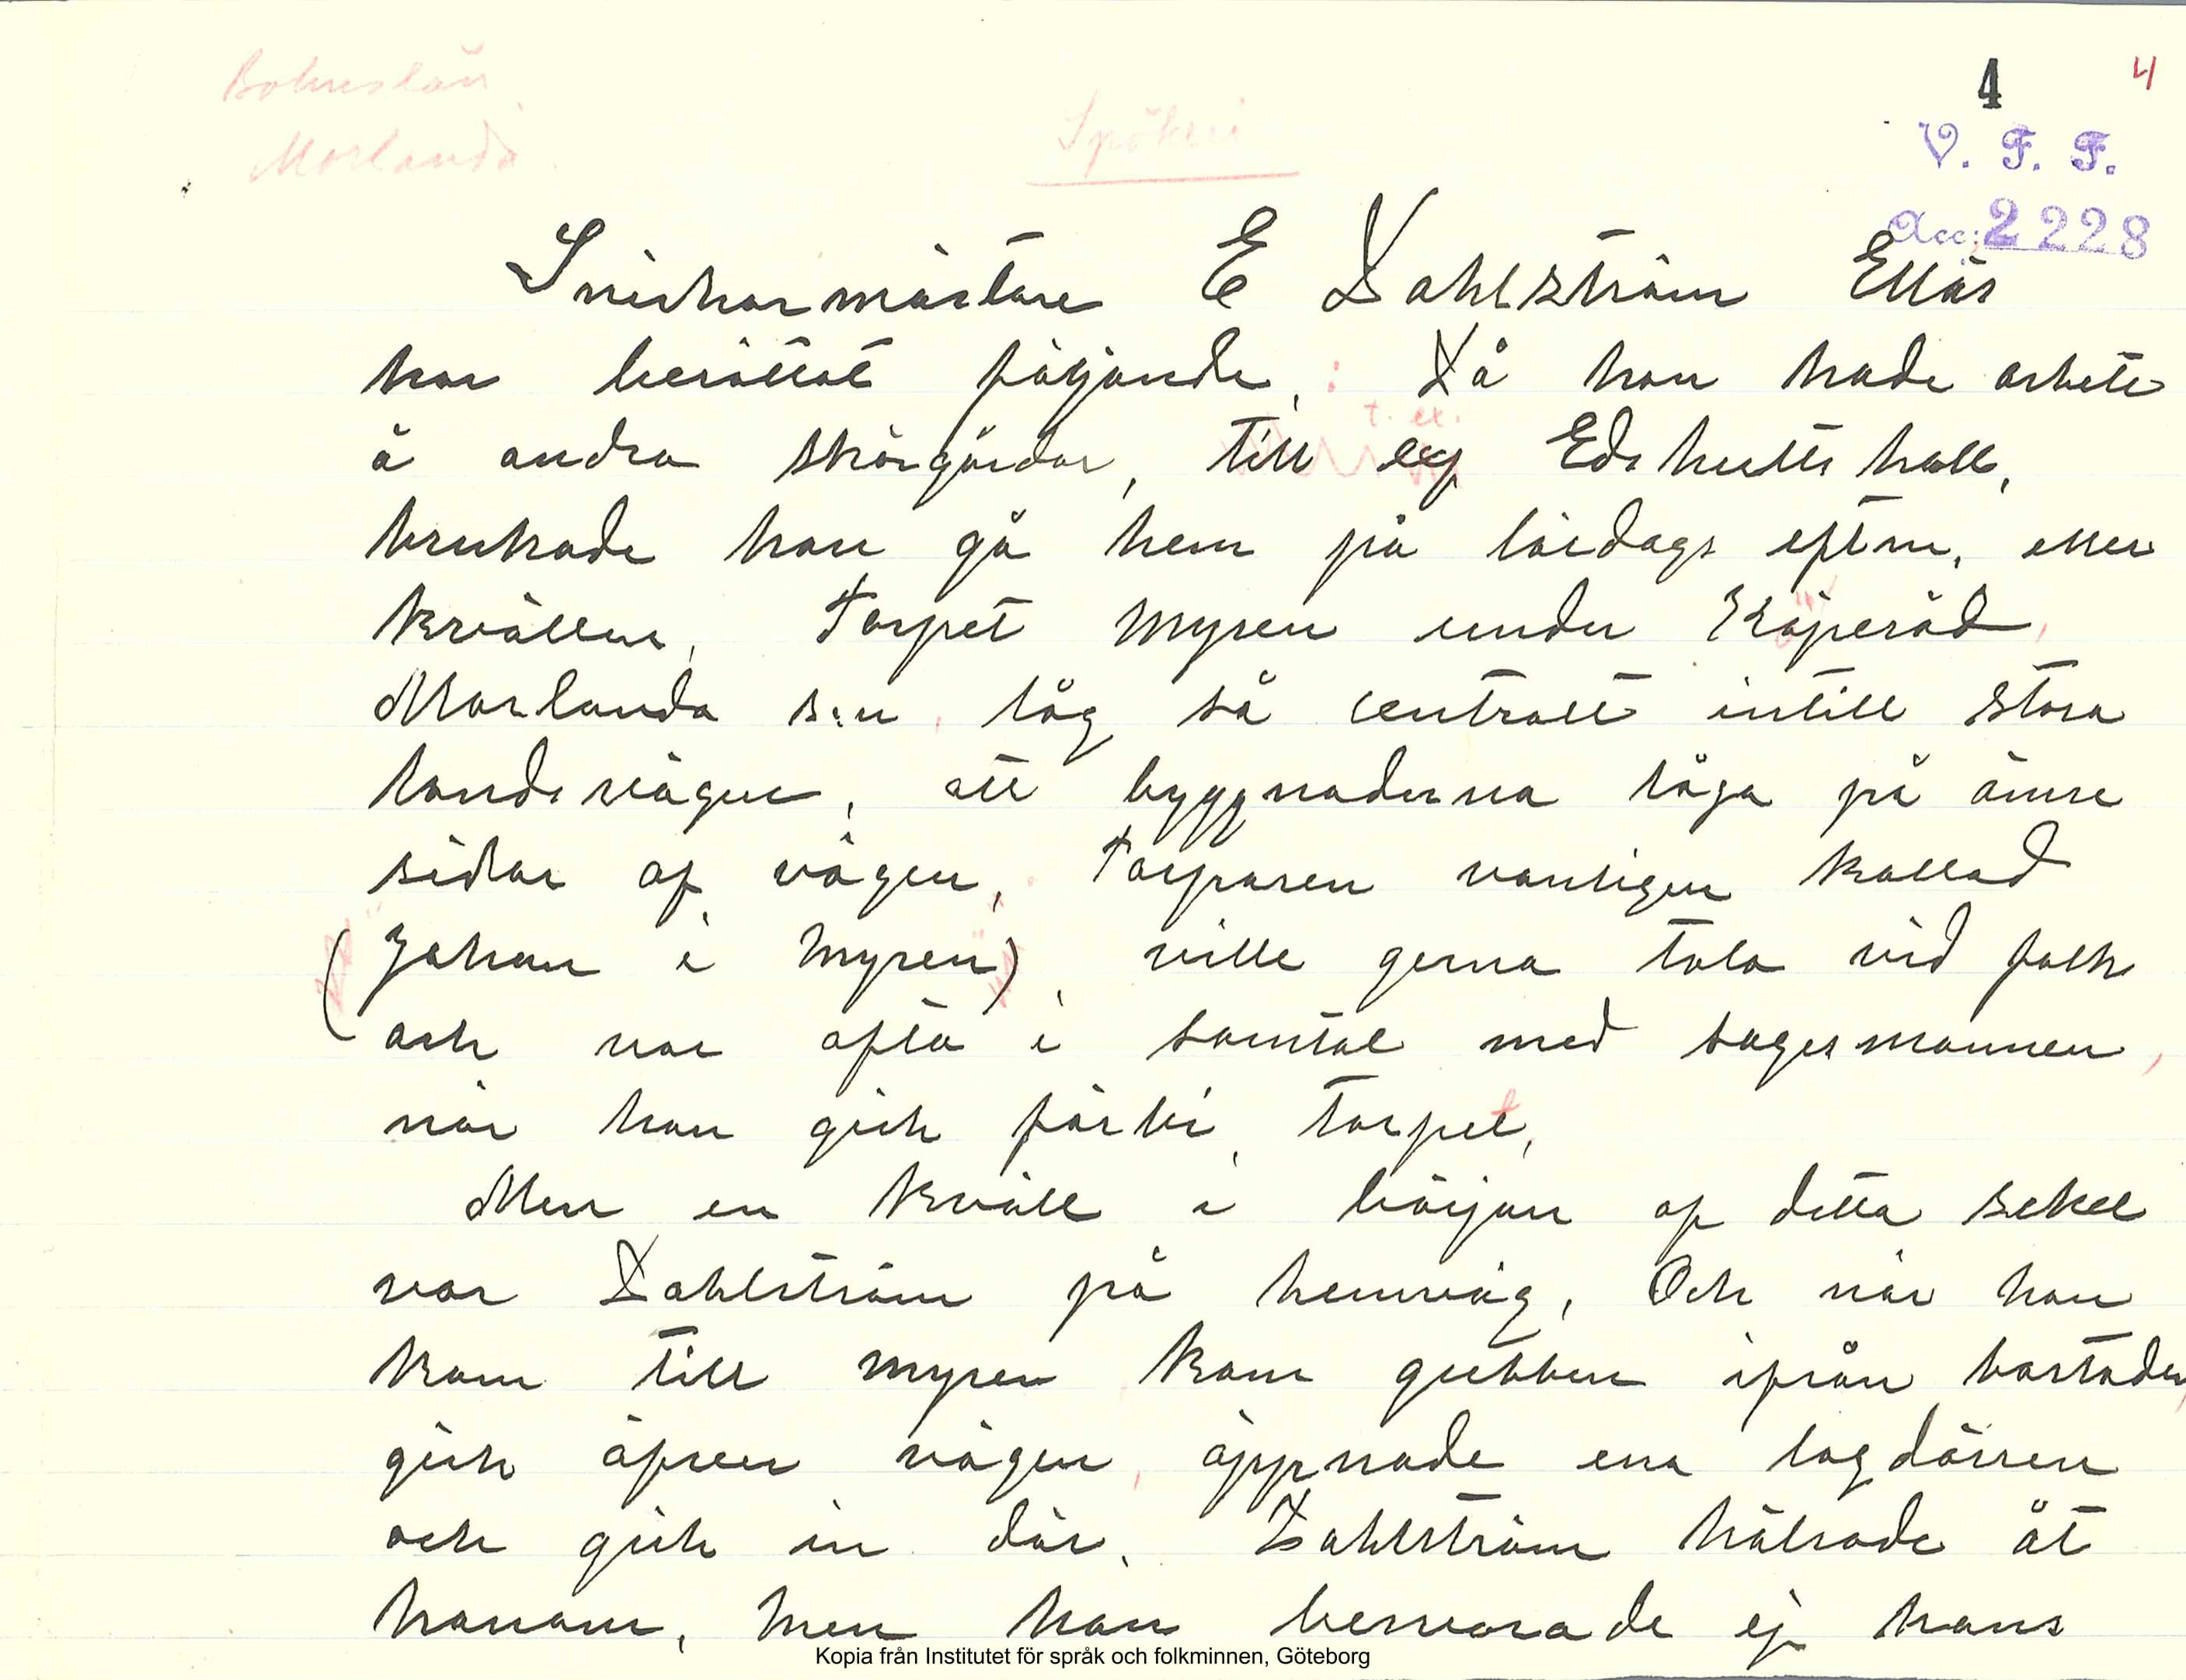 Bohuslän
Morlanda.
Spökeri
4 4
V. F. F.
Acc: 2228
Snickarmästare E Dahlström Ellös
har berättat följande: Då han hade arbete
å andra skärgårdar, till eg t. ex. Edshultshall,
brukade han gå hem på lördags eftm. eller
kvällen. Torpet Myren under Köperöd,
Morlanda s:n, låg så centralt intill stora
landsvägen, att byggnaderna låga på ömse
sidor af vägen. Torparen vanligen kallad
(Johan i Myren), ville gerna tala vid folk
och var ofta i samtal med sagesmannen,
när han gick förbi, torpet.
Men en kväll i början af detta sekel
var Dahlström på hemväg. Och när han
kom till myren kom gubben ifrån bostaden,
gick öfver vägen, öppnade ena logdörren
och gick in där. Dahlström hälsade åt
honom, men han besvarade ej hans
Kopia från Institutet för språk och folkminnen, Göteborg